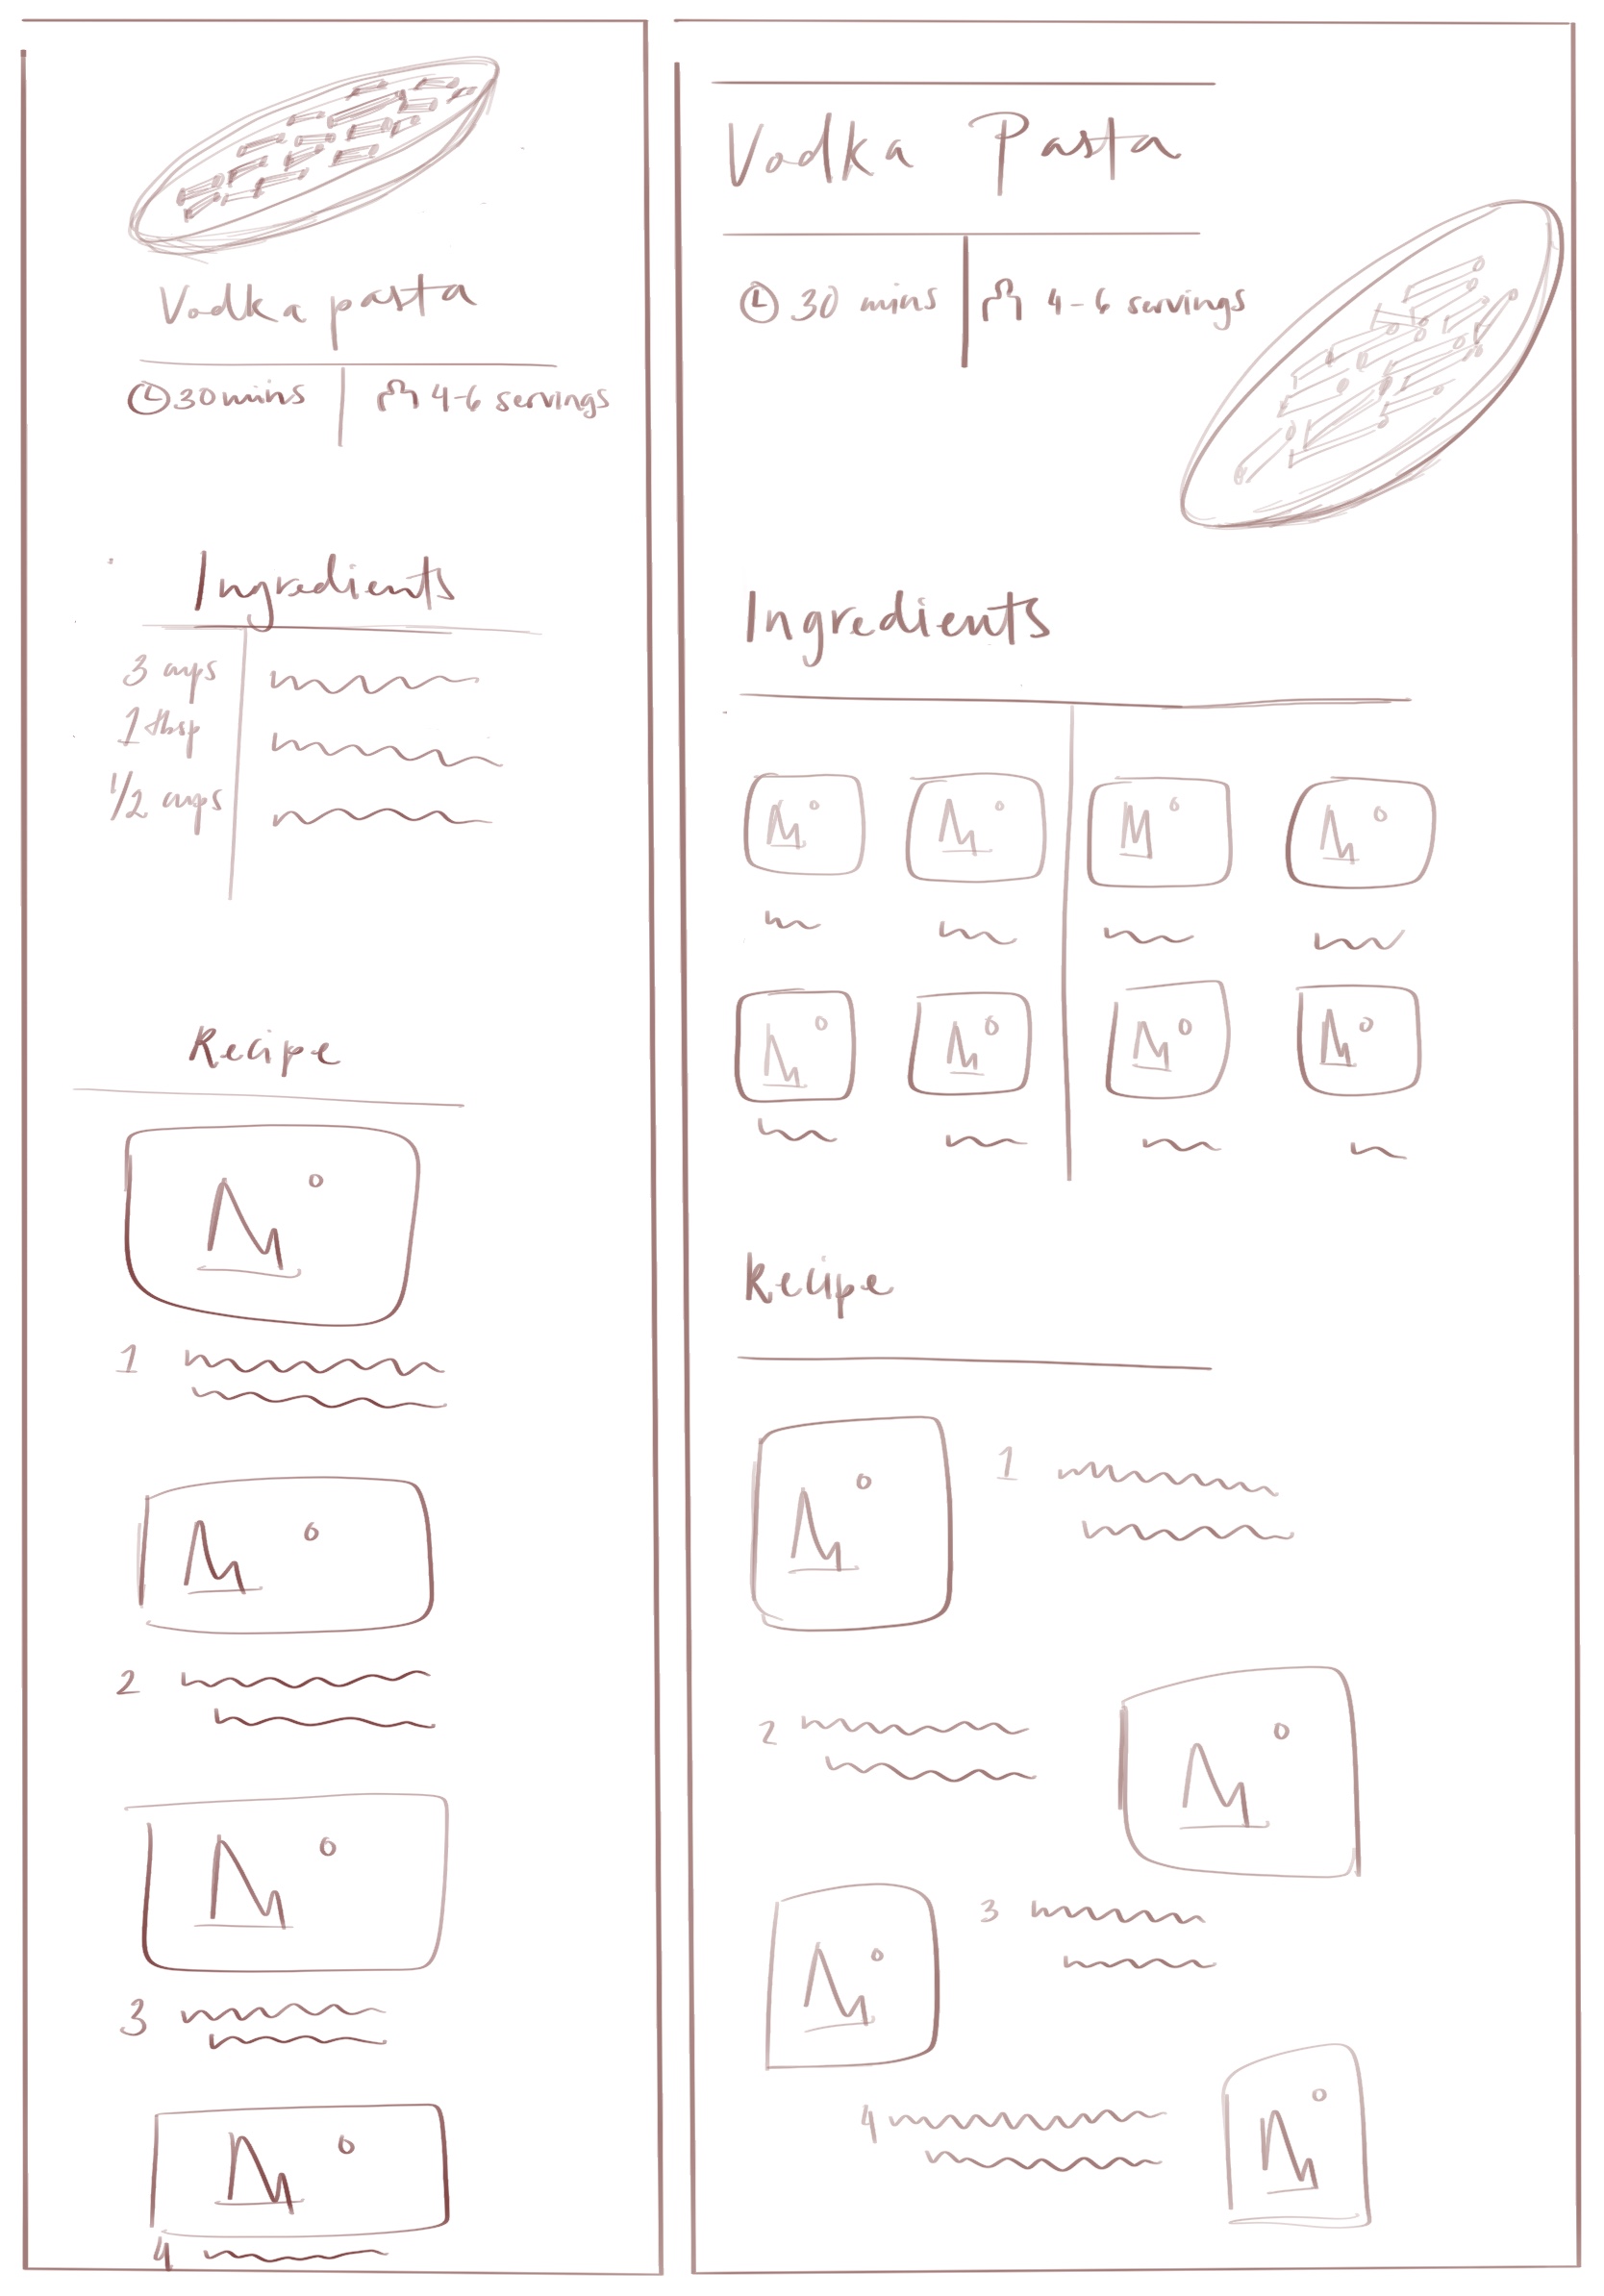 Vodka pasta
30 mins 4-6 servings
Ingredients
3 cups
1 tbsp
1/2 cups
Recipe
1
2
3
4
Vodka Pasta
30 mins 4-6 servings
Ingredients
Recipe
1
2
3
4